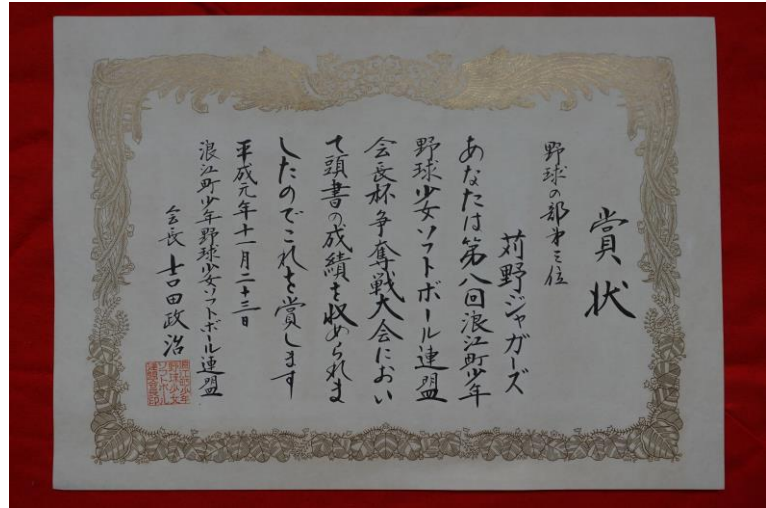 賞状
野球の部第三位
苅野ジャガーズ
あなたは第八回浪江町少年
野球少女ソフトボール連盟
会長杯争奪戦大会におい
て頭書の成績を収められま
したのでこれを賞します
平成元年十一月二十三日
浪江町少年野球少女ソフトボール連盟
会長 吉田政治